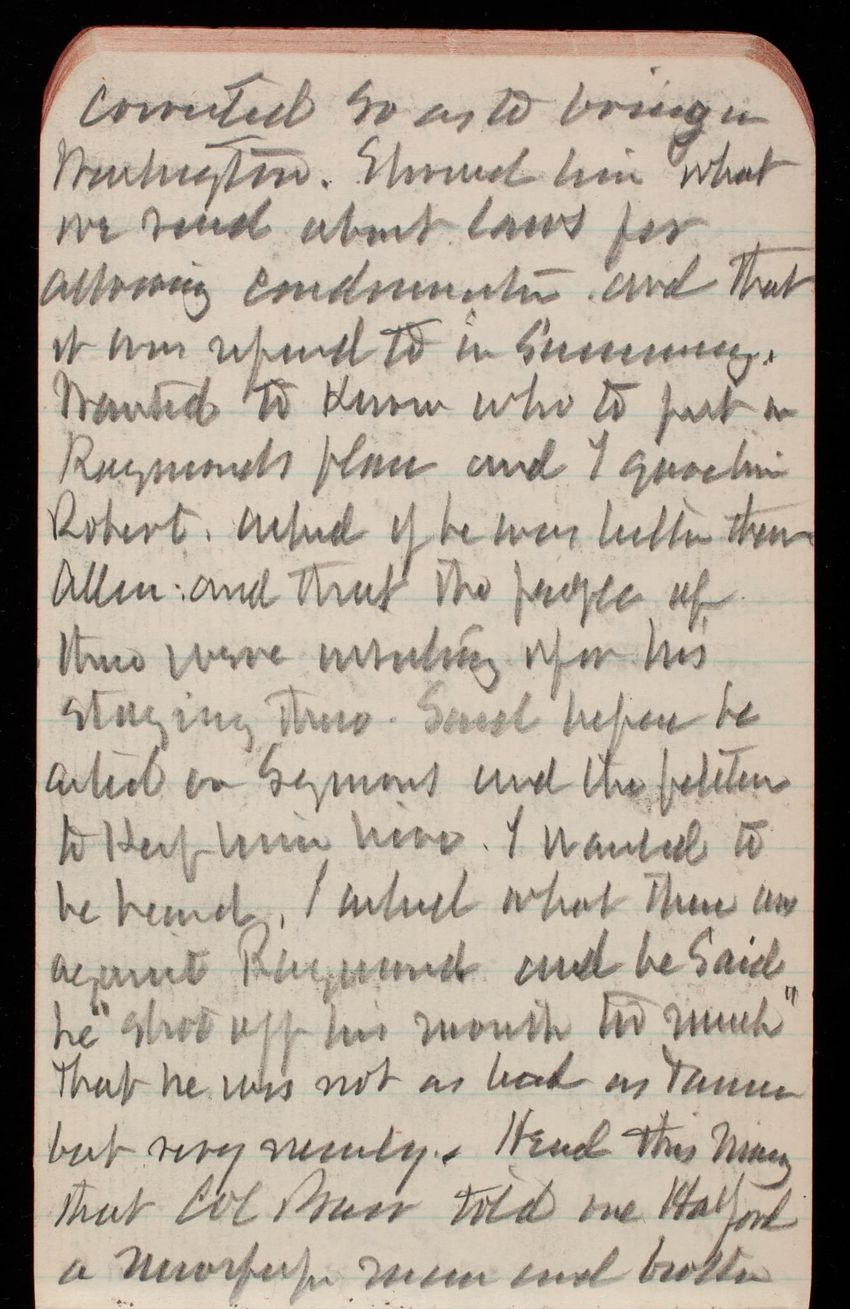 corrected so as to bring in
Washington. Showed him what
we said about laws for
allowing condemnation and that
it was referred to in Summary.
Wanted to know who to put in
Raymonds place and I gave him
Robert. asked if he was better than
Allen. and that the people of
there were insisting upon his
staying there. Said before he
acted on Symons and the petition
to Keep him here. I wanted to
be heard. I asked what there was
against Raymond and he Said
he "shot off his mouth to much"
That he was not as bad as Tanner
but very nearly. Heard this Mrng
that Col told one Halford
a newspaper man and brother